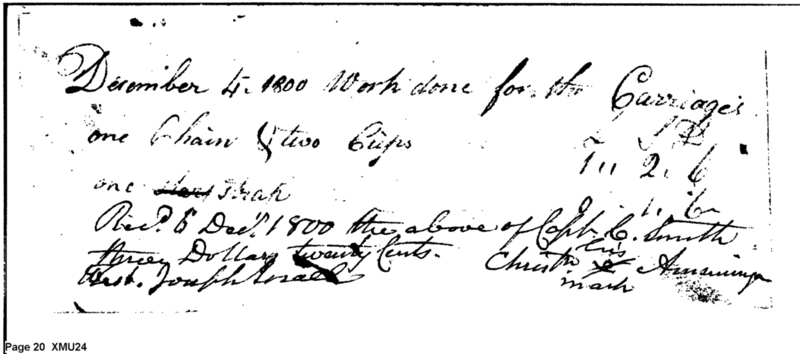 December 4. 1800 Work done for the Carriages
£ S D
one Chain & two Cups 1 " 2 " 6
one Strap 0 . 1 . 6
Rec.d 6 Dec.r 1800 the above of Capt. C. Smith
three Dollars twenty Cents.
his
Christn x
mark
Test. Joseph
Page 20 XMU24